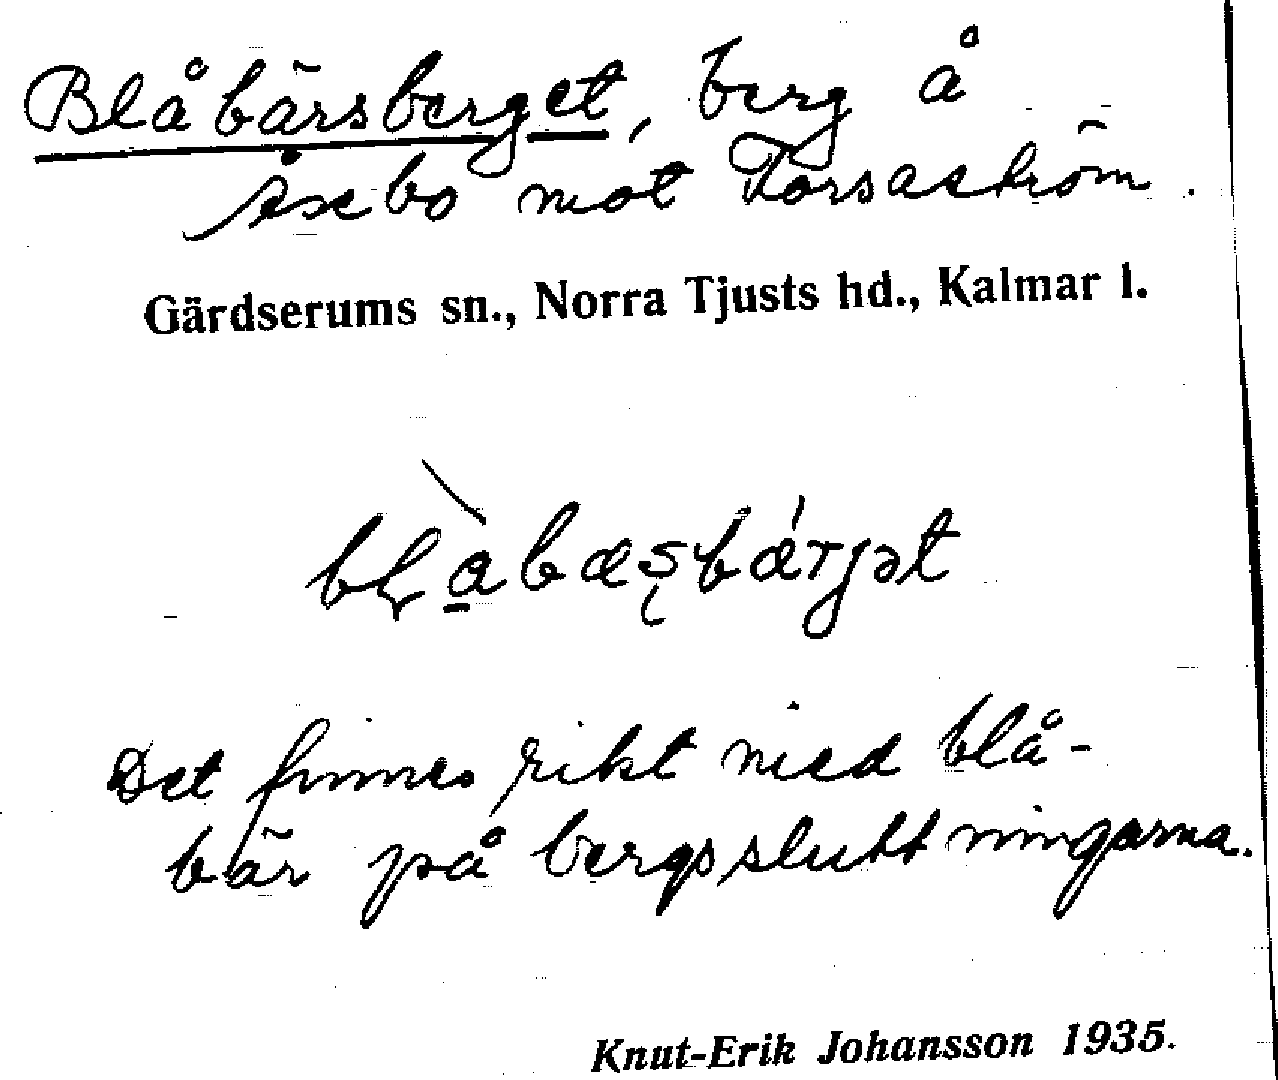 Blåbärsberget, berg å
Åxebo mot Forsaström.
Gärdserums sn., Norra Tjusts hd., Kalmar l.
Det finnes rikt med blå-
bär på bergssluttningarna.
Knut-Erik Johansson 1935.